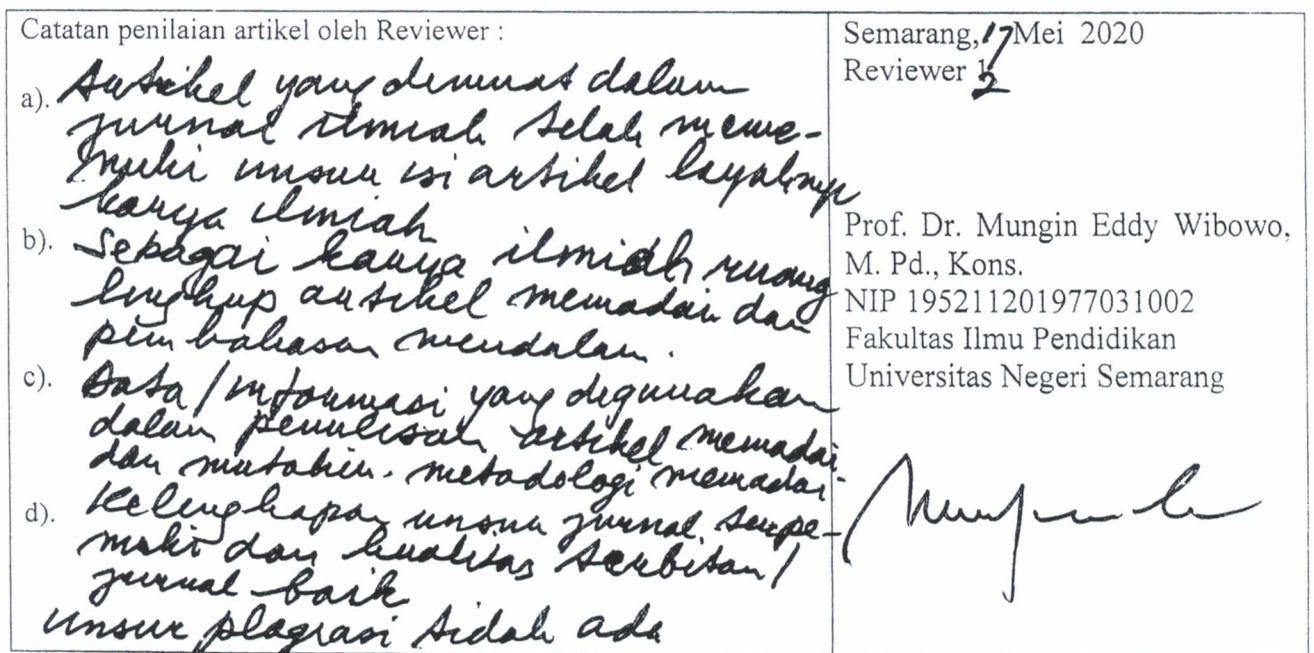 Catatan penilaian artikel oleh Reviewer :
a). Artikel yang dimuat dalam
jurnal ilmiah telah meme-
nuhi unsur isi artikel layaknya
karya ilmiah
b). Sebagai karya ilmiah ruang
lingkup artikel memadai dan
pembahasan mendalam.
c). Data / informasi yang digunakan
dalam penulisan artikel memadai
dan mutahir. metodologi memadai.
d). Kelengkapan unsur jurnal
dan kualitas terbitan /
jurnal baik
unsur plagiasi tidak ada
Semarang, 17 Mei 2020
Reviewer 2
Prof. Dr. Mungin Eddy Wibowo,
M. Pd., Kons.
NIP 195211201977031002
Fakultas Ilmu Pendidikan
Universitas Negeri Semarang